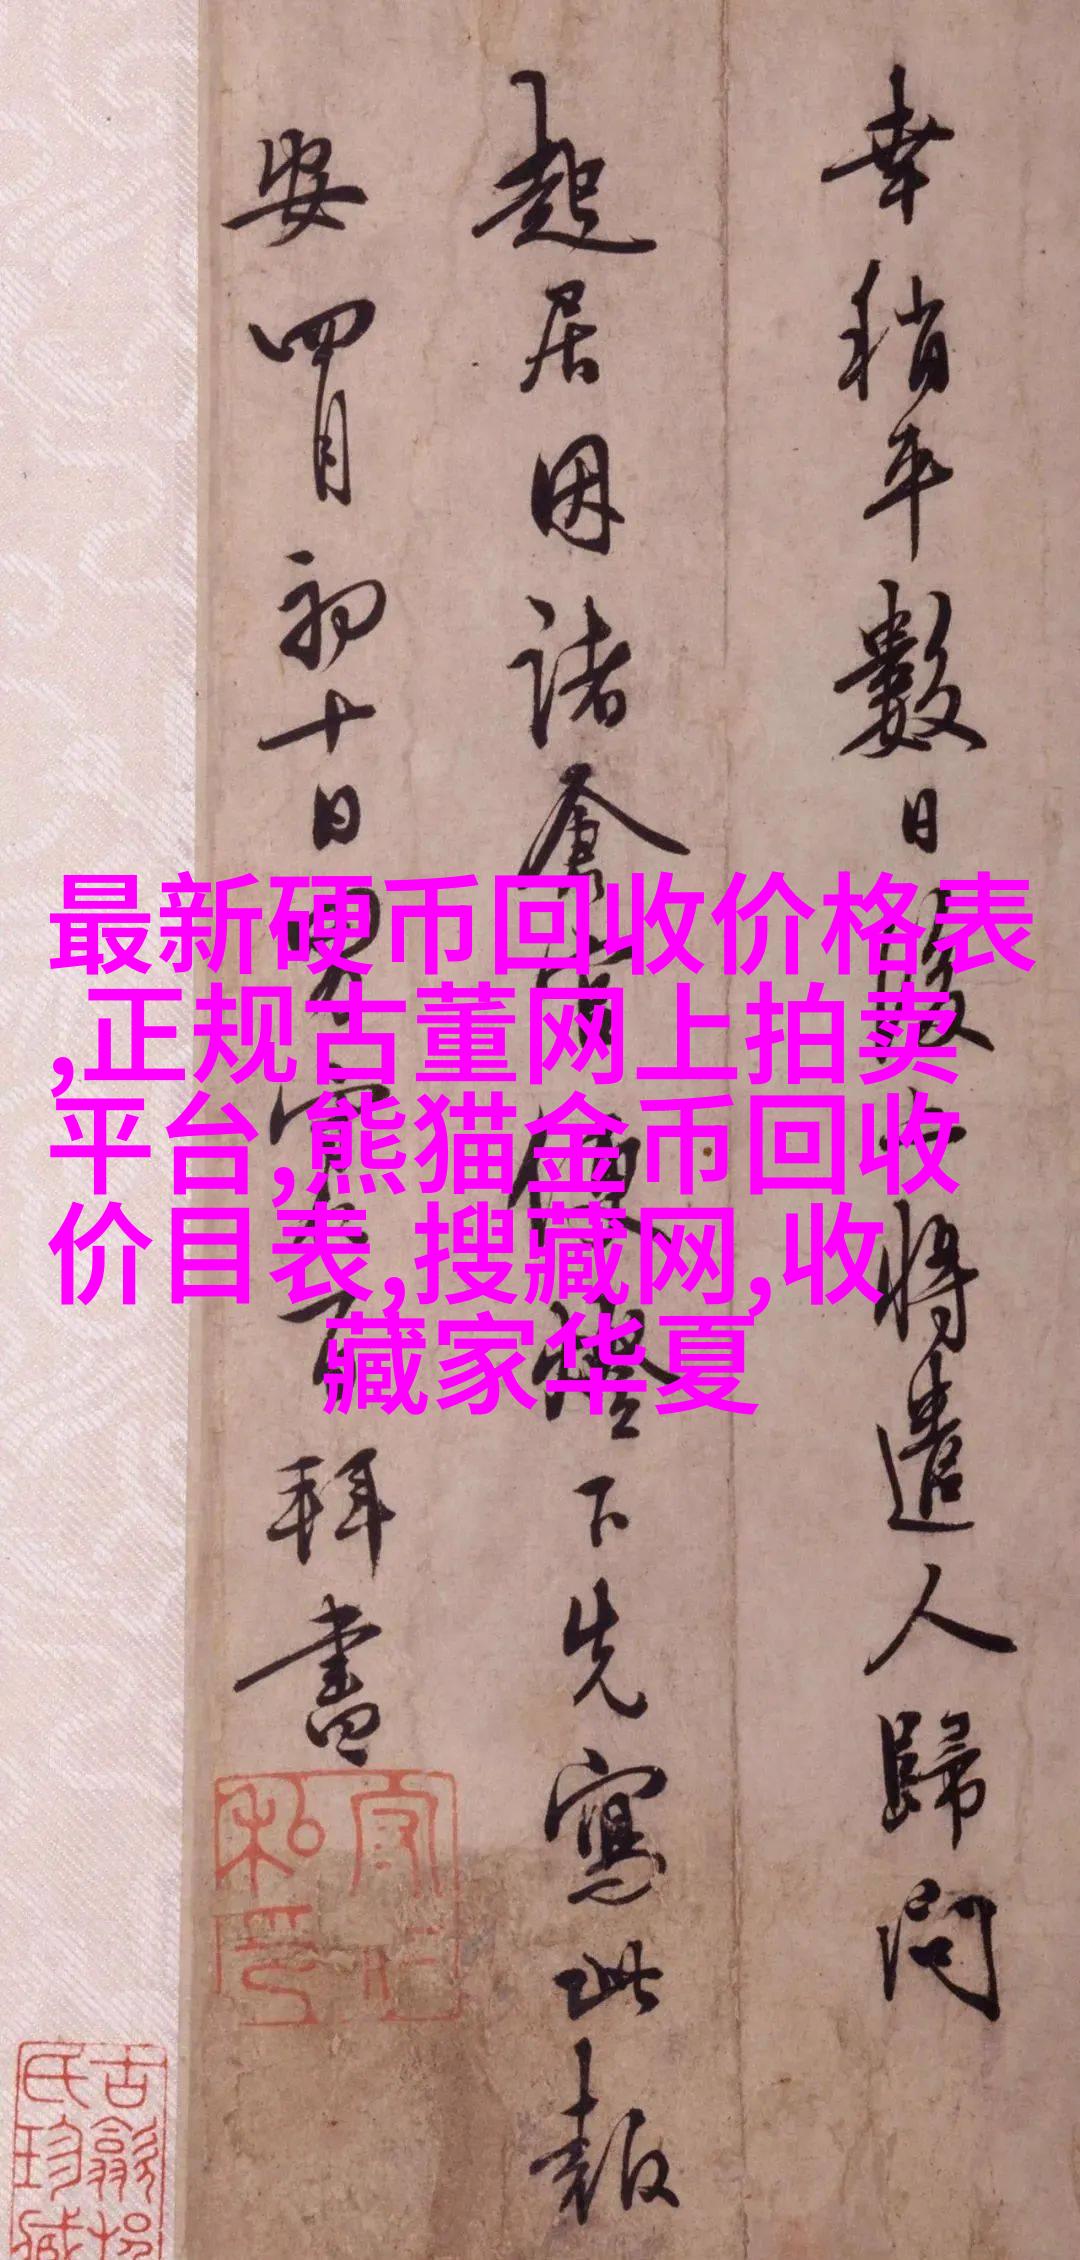 幸稍平數日後將遣人歸問
起居因諸便燈下先寫此報
安四月初十日男百拜書
最新硬币回收价格表
,正规古董网上拍卖
平台,熊猫金币回收
价目表,搜藏网,收
藏家华夏
私印
古歙
氏珍藏